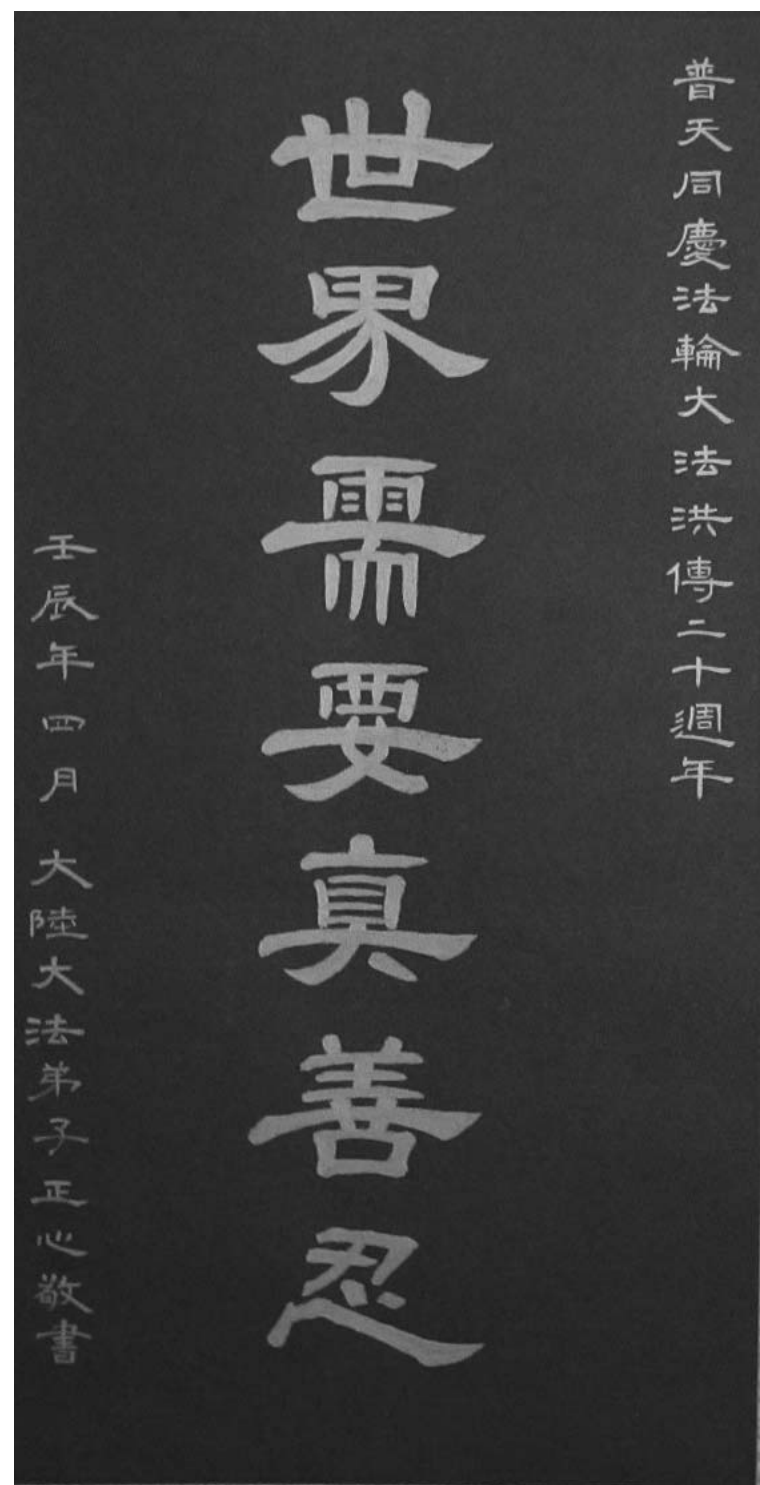 普天同慶法輪大法洪傳二十週年
世界需要真善忍
壬辰年四月 大陸大法弟子正心敬書